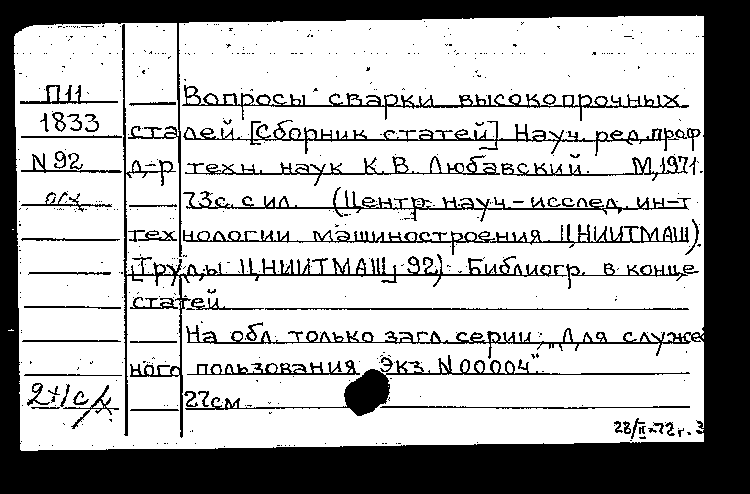 П11
1833
N 92
Вопросы сварки высокопрочных
сталей. [Сборник статей]. Науч. ред. проф.
д-р техн. наук К. В. Любавский. М, 1971.
73с. с ил. (Центр. науч-исслед. ин-т
технологии машиностроения ЦНИИТМАШ).
[Труды ЦНИИТМАШ, 92). Библиогр. в конце
статей
На обл. только загл. серии; „Для служеб
ного пользования Экз. N00004"
27см
28/II-72г.